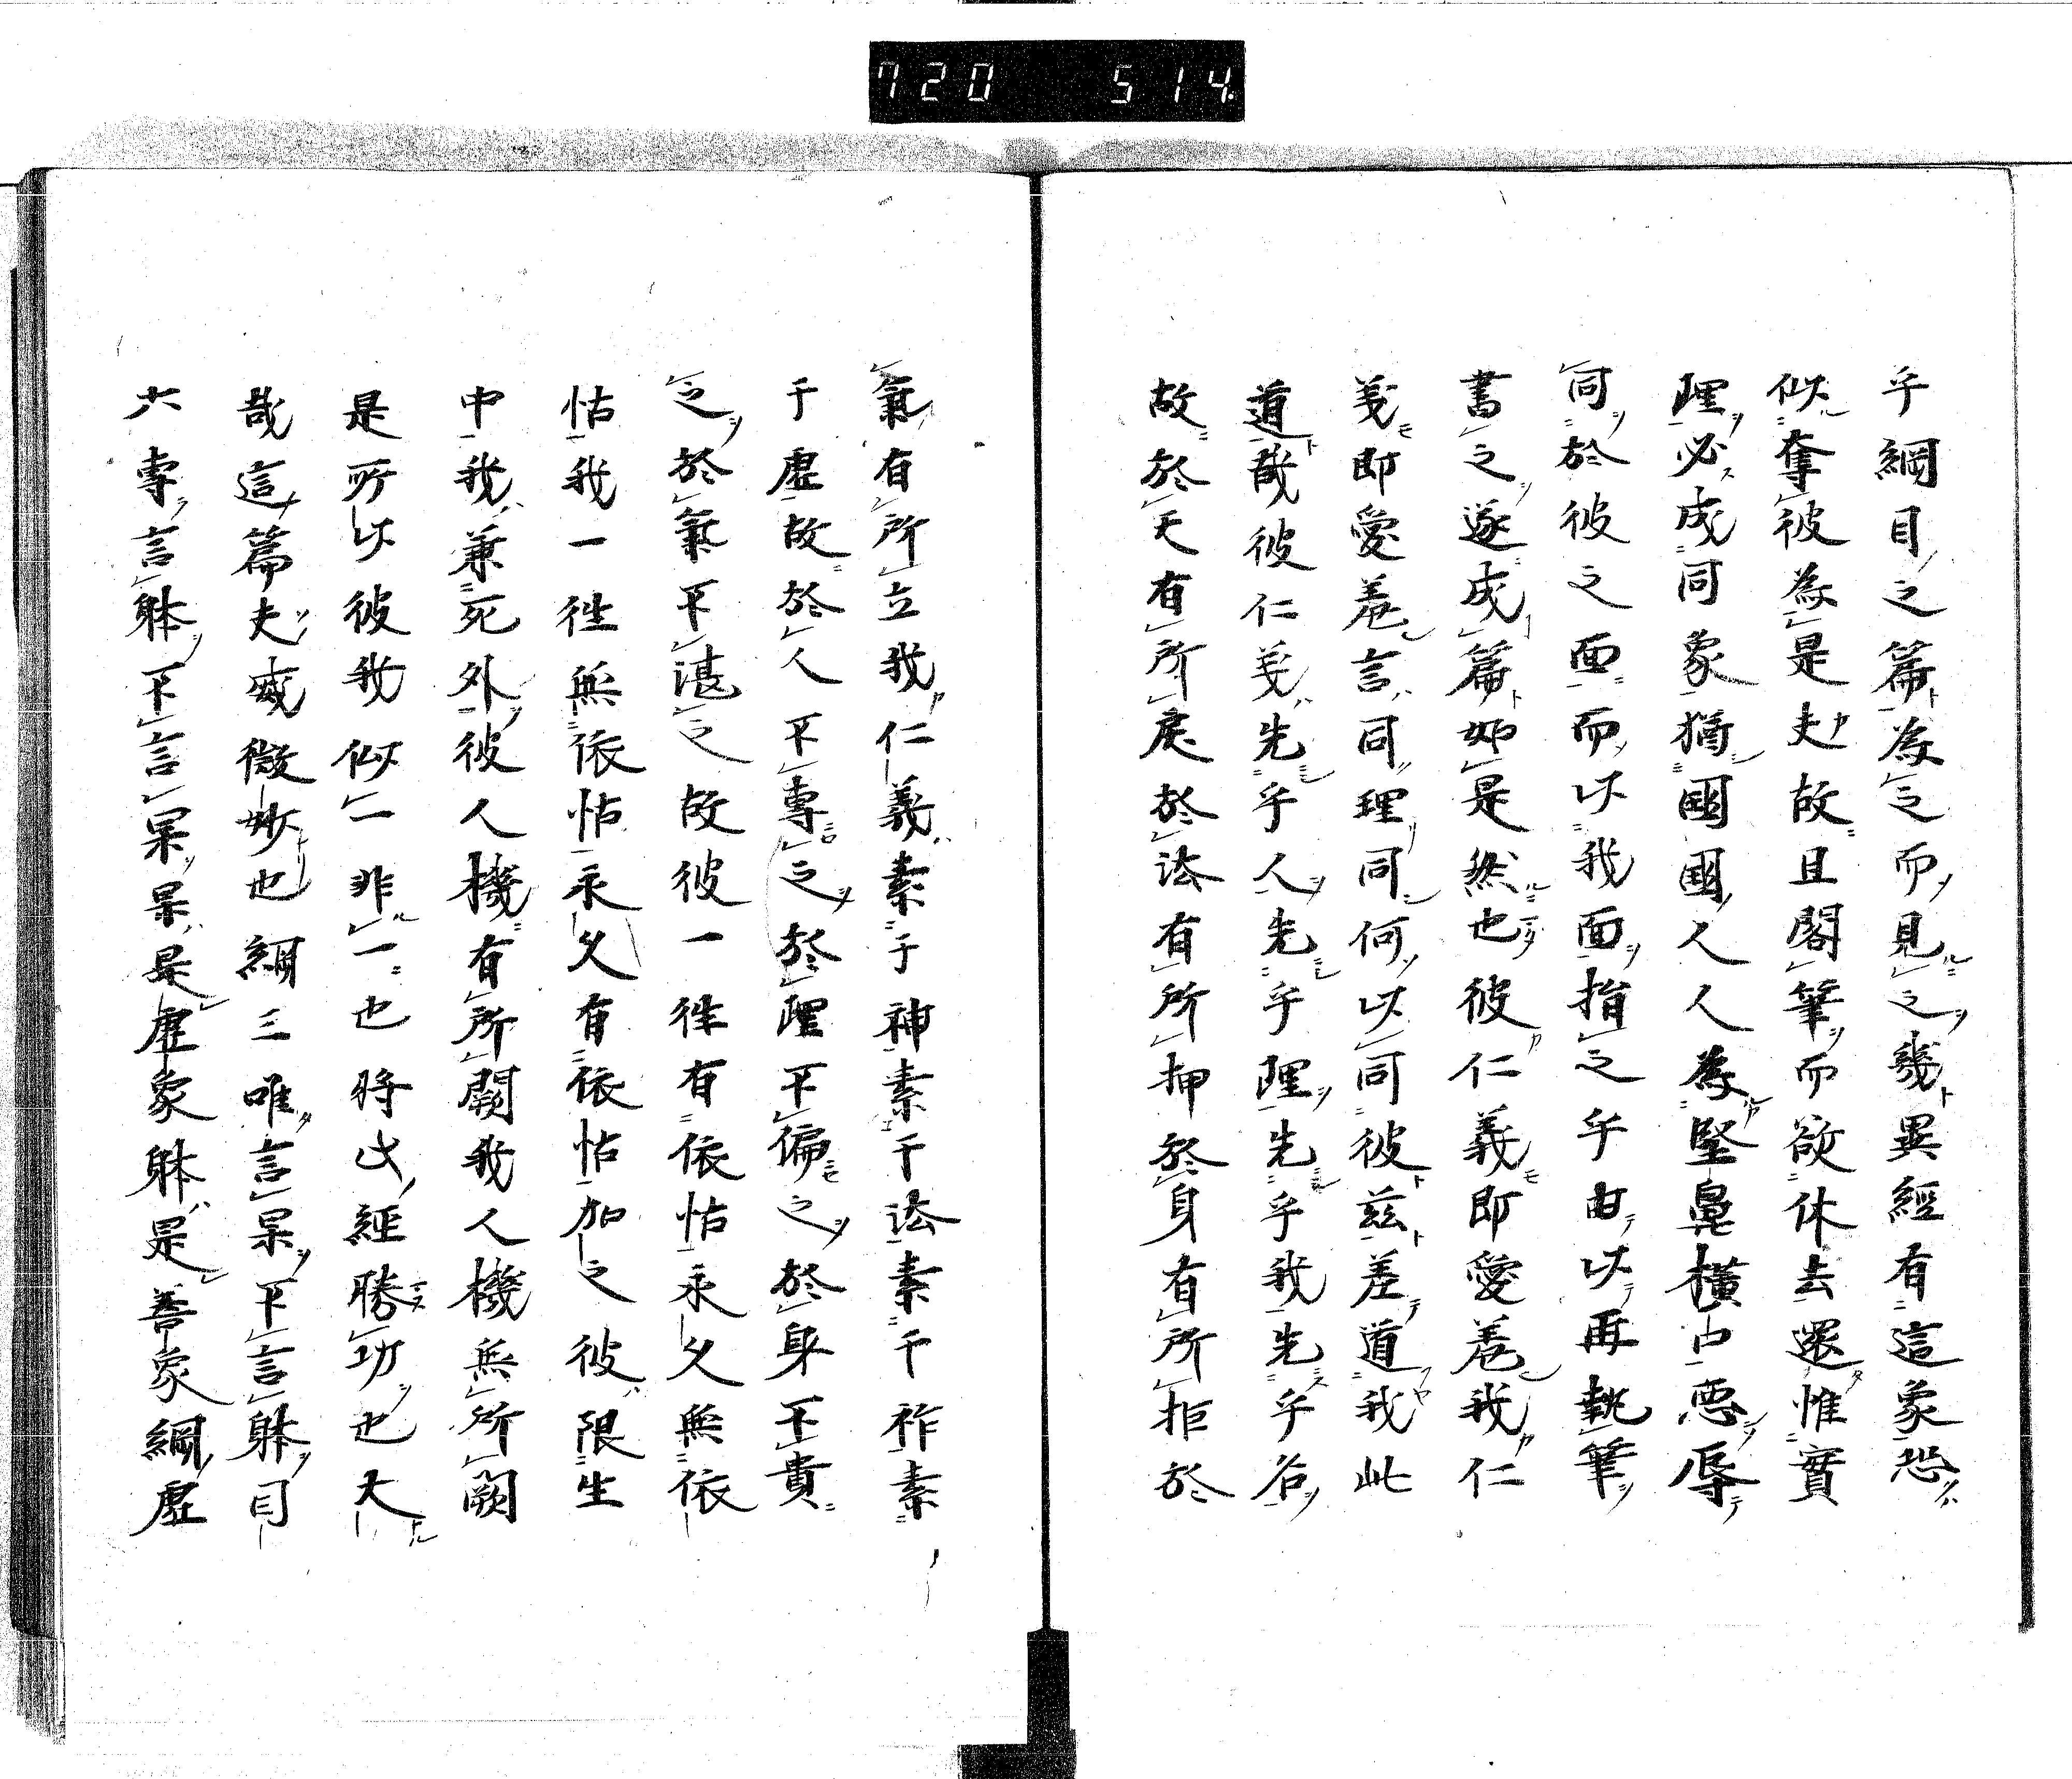 720 514
乎綱目之篇為之而見之幾異經有這象恐
似奪彼為是夫故且閣筆而欲休去還惟實
理必成同象猶國國人人為堅鼻橫口惡辱
同於彼之面而以我面指之乎由以再執筆
書之遂成篇如是然也彼仁義即愛羞我仁
義即愛羞言同理同何以同彼茲差道我此
道哉彼仁義先乎人先乎理先乎我先乎名
故於天有所戾於法有所押於身有所拒於
氣有所立我仁義素于神素于法素于祚素
于虛故於人不專之於理不偏之於身不貴
之於氣不湛之故彼一徃有依怙永久無依
怙我一徃無依怙永久有依怙加之彼限生
中我兼死外彼人機有所闕我人機無所闕
是所以彼我似一非一也將此經勝功也大
哉這篇夫威微妙也綱三唯言杲不言躰目
六專言躰不言杲杲是虛象躰是善象綱虛